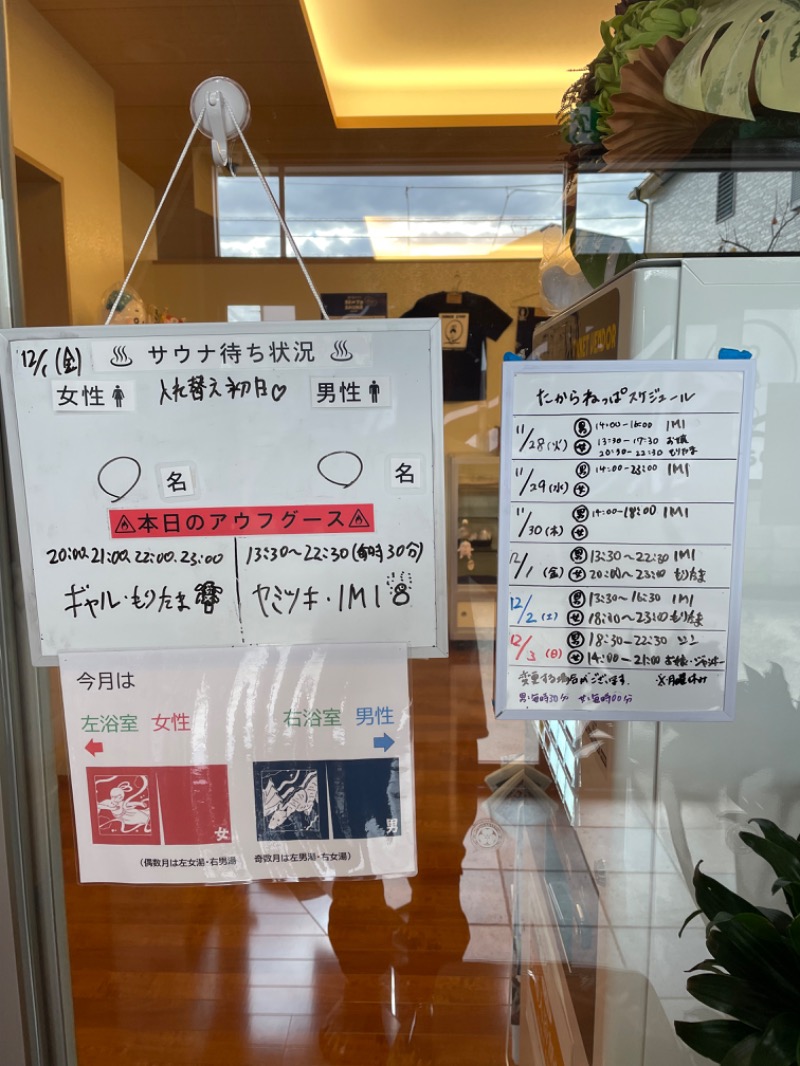 12/1(金) サウナ待ち状況
女性 入れ替え初日♡ 男性
〇名 〇名
本日のアウフグース
20:00.21:00.22:00.23:00
ギャル・もりたま
13:30〜22:30(毎時30分)
ヤミツキ・IMI
今月は
左浴室 女性 右浴室 男性
女 男
(偶数月は左女湯・右男湯 奇数月は左男湯・右女湯)
たからねっぱスケジュール
11/28(火) 男 14:00-16:00 IMI
女 13:30-17:30 お嬢
20:30-22:30 もりたま
11/29(水) 男 14:00-23:00 IMI
女
11/30(木) 男 14:00-18:00 IMI
女
12/1(金) 男 13:30〜22:30 IMI
女 20:00〜23:00 もりたま
12/2(土) 男 13:30〜16:30 IMI
女 18:00〜23:00 もりたま
12/3(日) 男 18:30-22:30 リン
女 14:00-21:00 お嬢・ジャンボー
変更する場合がございます. ※月曜休み
男:毎時30分 女:毎時00分